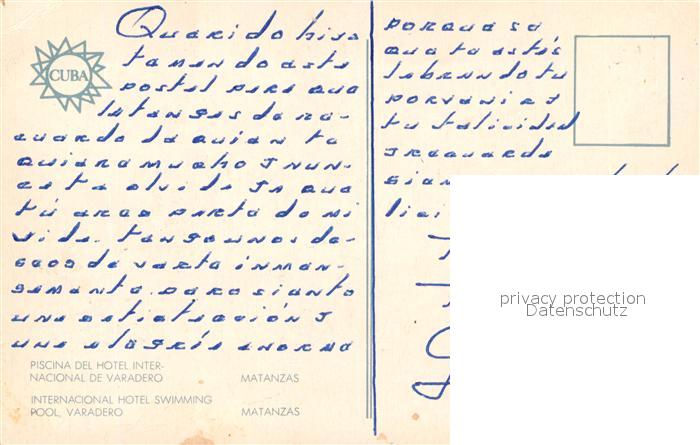 Querido hijo
te mando esta
postal para que
la tengas de re-
cuerdo de quien te
quiere mucho y nun-
ca te olvida ya que
tú eres parte de mi
vida. tengo unos de-
seos de verte inmen-
samente. pero siento
una satisfacción y
una alegría enorme
porque se
que tu estás
labrando tu
porvenir y
tu felicidad
CUBA
PISCINA DEL HOTEL INTER-
NACIONAL DE VARADERO MATANZAS
INTERNACIONAL HOTEL SWIMMING
POOL, VARADERO MATANZAS
privacy protection
Datenschutz